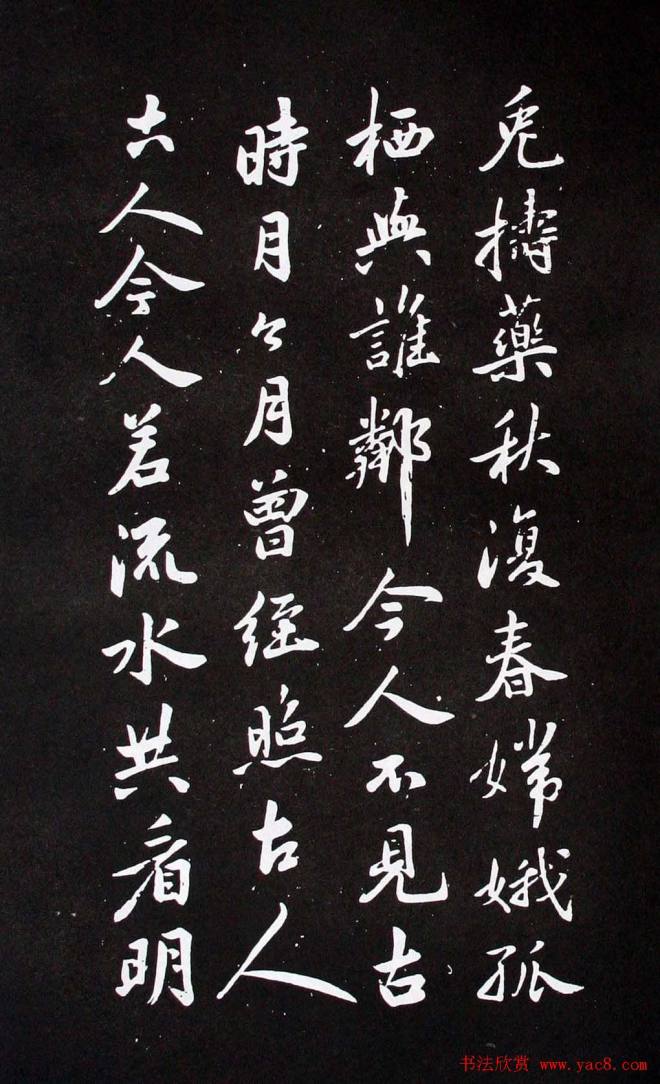 兎擣藥秋復春嫦娥孤
栖與誰鄰今人不見古
時月今月曾經照古人
古人今人若流水共看明
书法欣赏 www.yac8.com